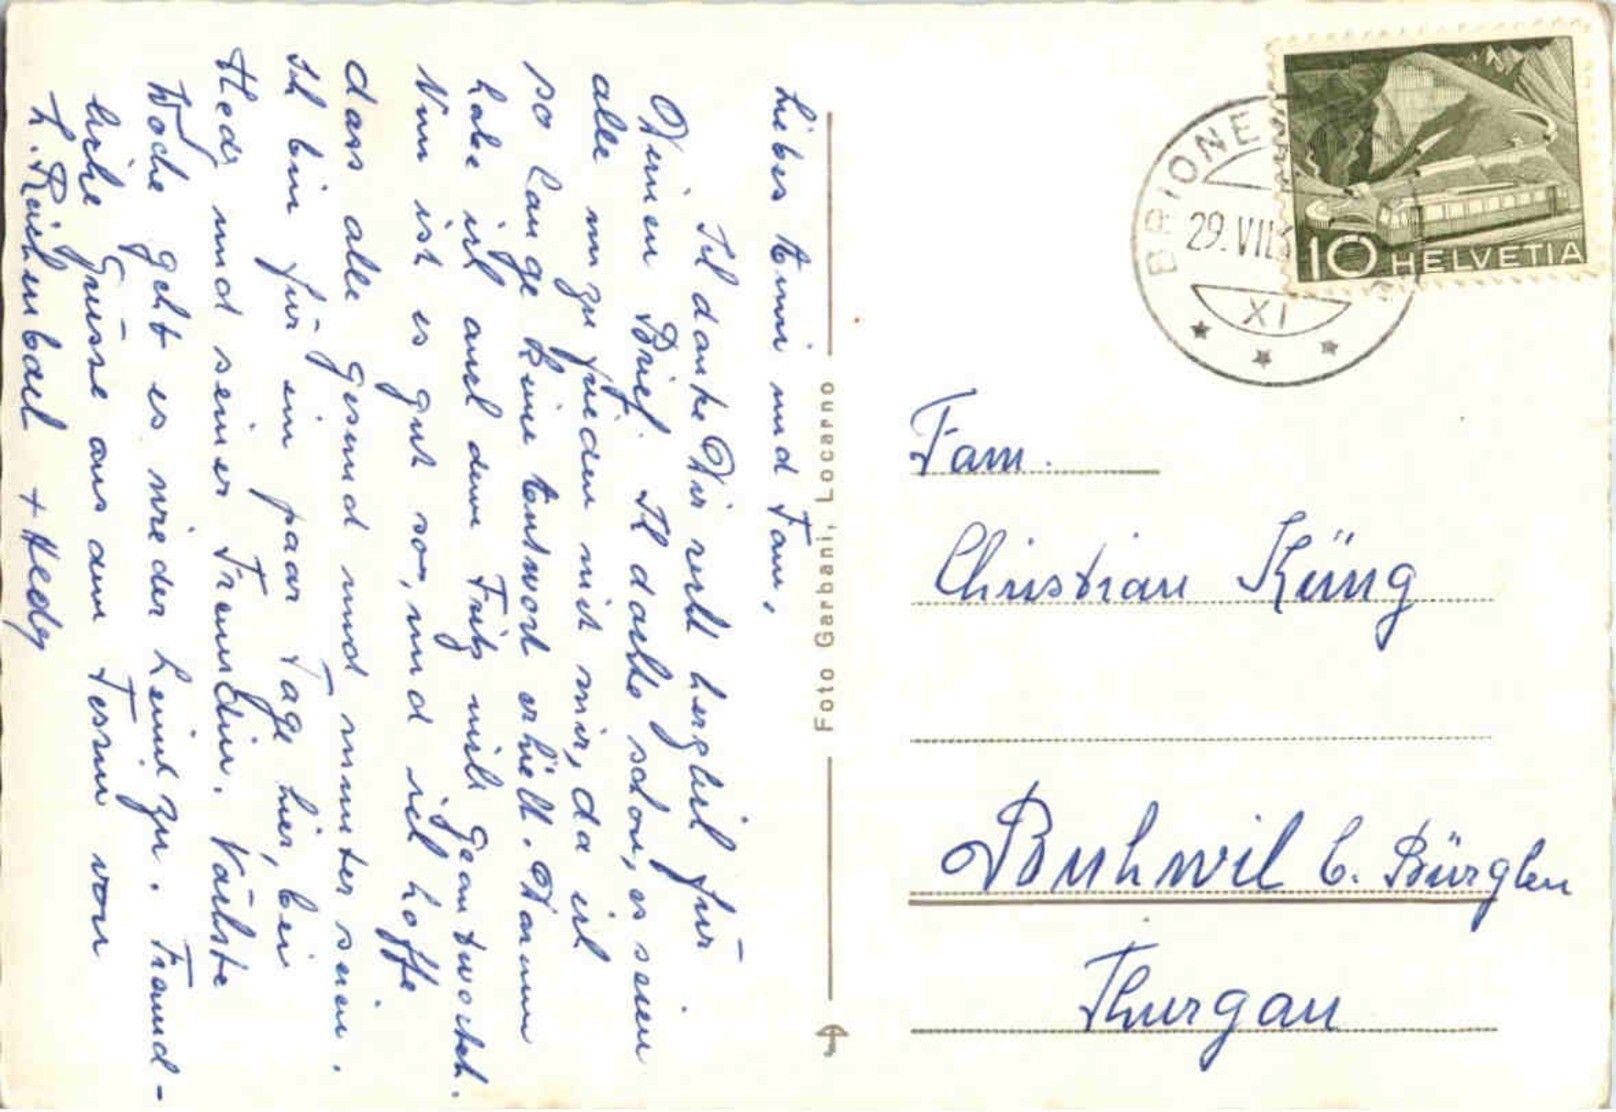 Liebes Anni und Fam,
Ich danke Dir recht herzlich für
Deinen Brief. Ich dachte schon, es seien
alle unzufrieden mit mir, da ich
so lange keine Antwort erhielt. Darum
habe ich auch dem Fritz nicht geantwortet.
Nun ist es gut so, und ich hoffe
dass alle gesund und munter seien.
Ich bin für ein paar Tage hier, bei
Hedi und seiner Freundin. Nächste
Woche geht es wieder heimzu. Freund-
liche Grüsse aus dem Tessin von
+ Hedy
Foto Garbani, Locarno
BRIONE
29. VII.
XI
10 HELVETIA
Fam.
Christian Küng
Buhwil b. Bürglen
Thurgau